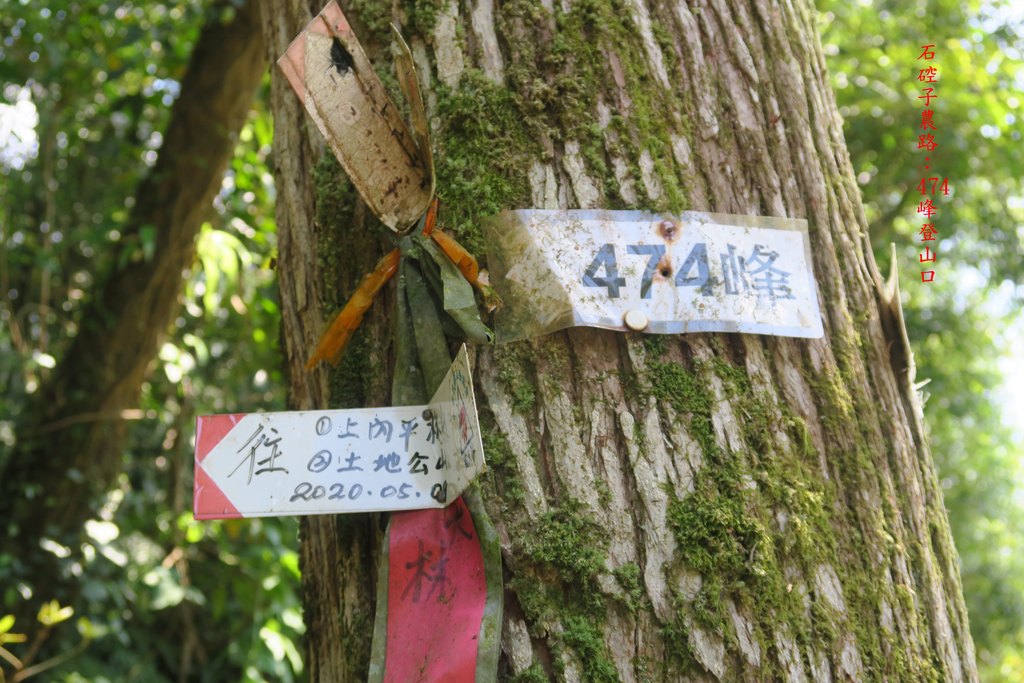 石硿子農路：474峰登山口
474峰
往
①上內平林
②土地公山
2020.05.01
林